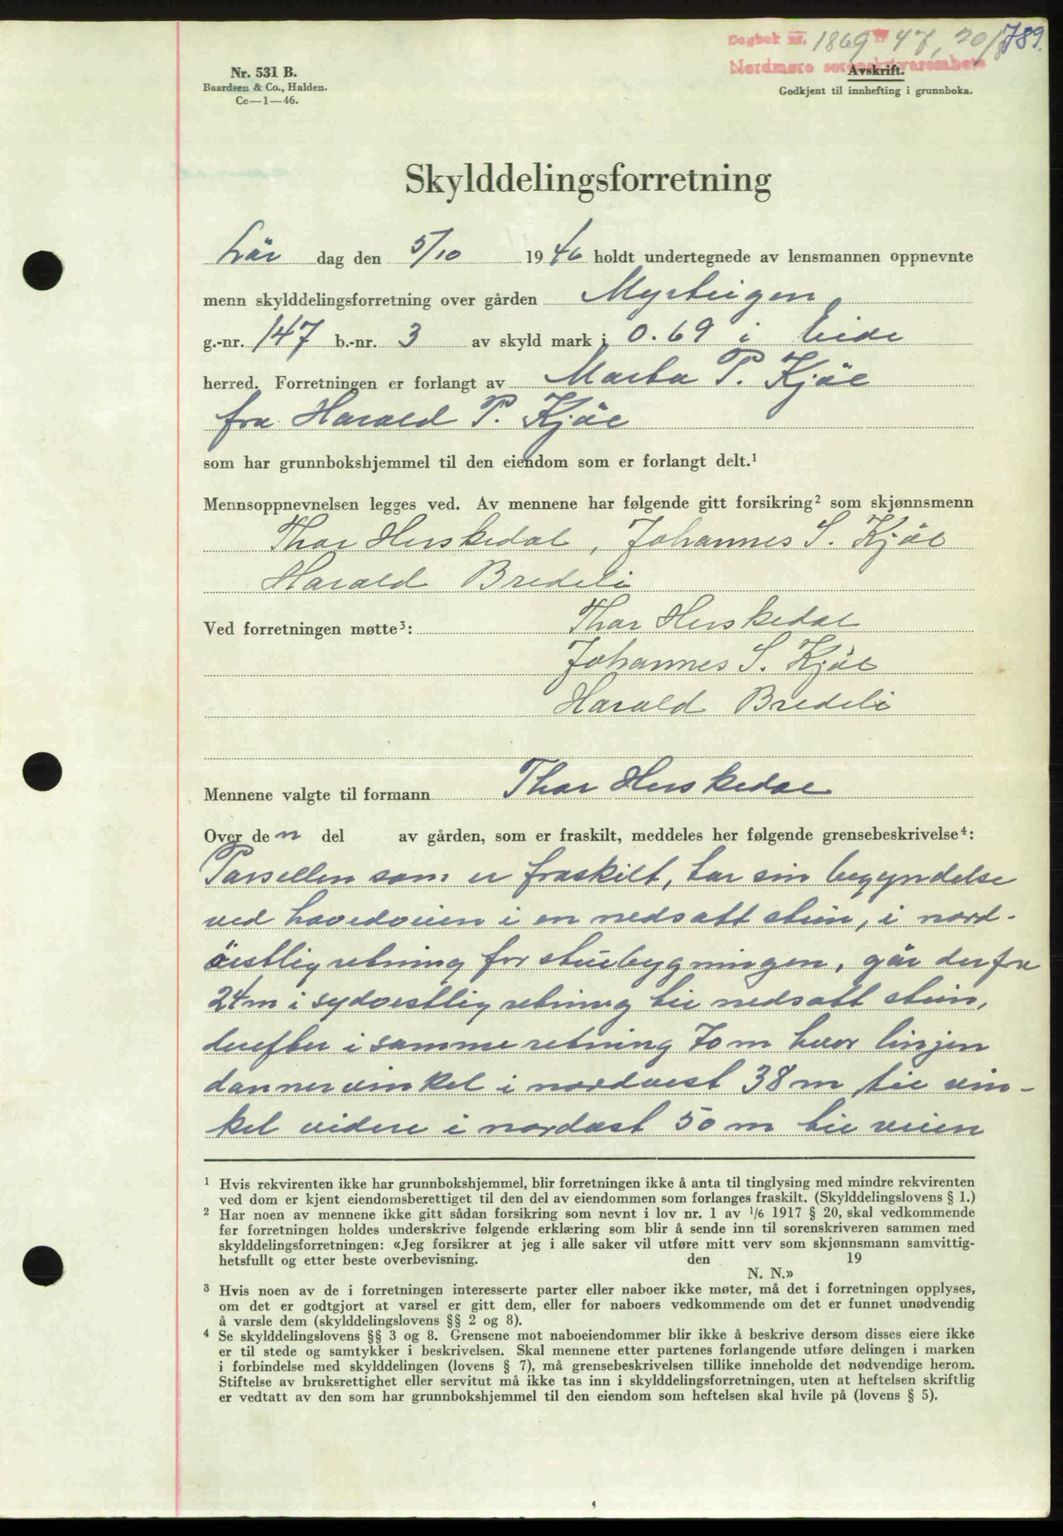 Dagbok nr. 1869 47, 20/8 789.
Nordmøre sorenskriverembete
Nr. 531 B.
Baardsen & Co., Halden.
Cc—1—46.
Avskrift.
Godkjent til innhefting i grunnboka.
Skylddelingsforretning
Lör dag den 5/10 1946 holdt undertegnede av lensmannen oppnevnte
menn skylddelingsforretning over gården Myrteigen
g.-nr. 147 b.-nr. 3 av skyld mark 0.69 i Eide
herred. Forretningen er forlangt av Marta P. Kjöl
fra Harald P. Kjöl
som har grunnbokshjemmel til den eiendom som er forlangt delt.¹
Mennsoppnevnelsen legges ved. Av mennene har følgende gitt forsikring² som skjønnsmenn
Thor Herskedal, Johannes S. Kjöl
Harald Bredeli
Ved forretningen møtte³: Thor Herskedal
Johannes S. Kjöl
Harald Bredeli
Mennene valgte til formann Thor Herskedal
Over den del av gården, som er fraskilt, meddeles her følgende grensebeskrivelse⁴:
Parsellen som er fraskilt, tar sin begyndelse
ved hovedveien i en nedsatt stein, i nord-
östlig retning for stuebygningen, går derfra
24 m i sydvestlig retning til nedsatt stein,
derefter i samme retning 70 m hvor linjen
danner vinkel i nordvest 38 m til vin-
kel videre i nordöst 50 m til veien
¹ Hvis rekvirenten ikke har grunnbokshjemmel, blir forretningen ikke å anta til tinglysing med mindre rekvirenten
ved dom er kjent eiendomsberettiget til den del av eiendommen som forlanges fraskilt. (Skylddelingslovens § 1.)
² Har noen av mennene ikke gitt sådan forsikring som nevnt i lov nr. 1 av 1/6 1917 § 20, skal vedkommende
før forretningen holdes underskrive følgende erklæring som blir å sende inn til sorenskriveren sammen med
skylddelingsforretningen: «Jeg forsikrer at jeg i alle saker vil utføre mitt verv som skjønnsmann samvittig-
hetsfullt og etter beste overbevisning. den 19
N. N.»
³ Hvis noen av de i forretningen interesserte parter eller naboer ikke møter, må det i forretningen opplyses,
om det er godtgjort at varsel er gitt dem, eller for naboers vedkommende om det er funnet unødvendig
å varsle dem (skylddelingslovens §§ 2 og 8).
⁴ Se skylddelingslovens §§ 3 og 8. Grensene mot naboeiendommer blir ikke å beskrive dersom disses eiere ikke
er til stede og samtykker i beskrivelsen. Skal mennene etter partenes forlangende utføre delingen i marken
i forbindelse med skylddelingen (lovens § 7), må grensebeskrivelsen tillike inneholde det nødvendige herom.
Stiftelse av bruksrettighet eller servitut må ikke tas inn i skylddelingsforretningen, uten at heftelsen skriftlig
er vedtatt av den som har grunnbokshjemmel til den eiendom som heftelsen skal hvile på (lovens § 5).